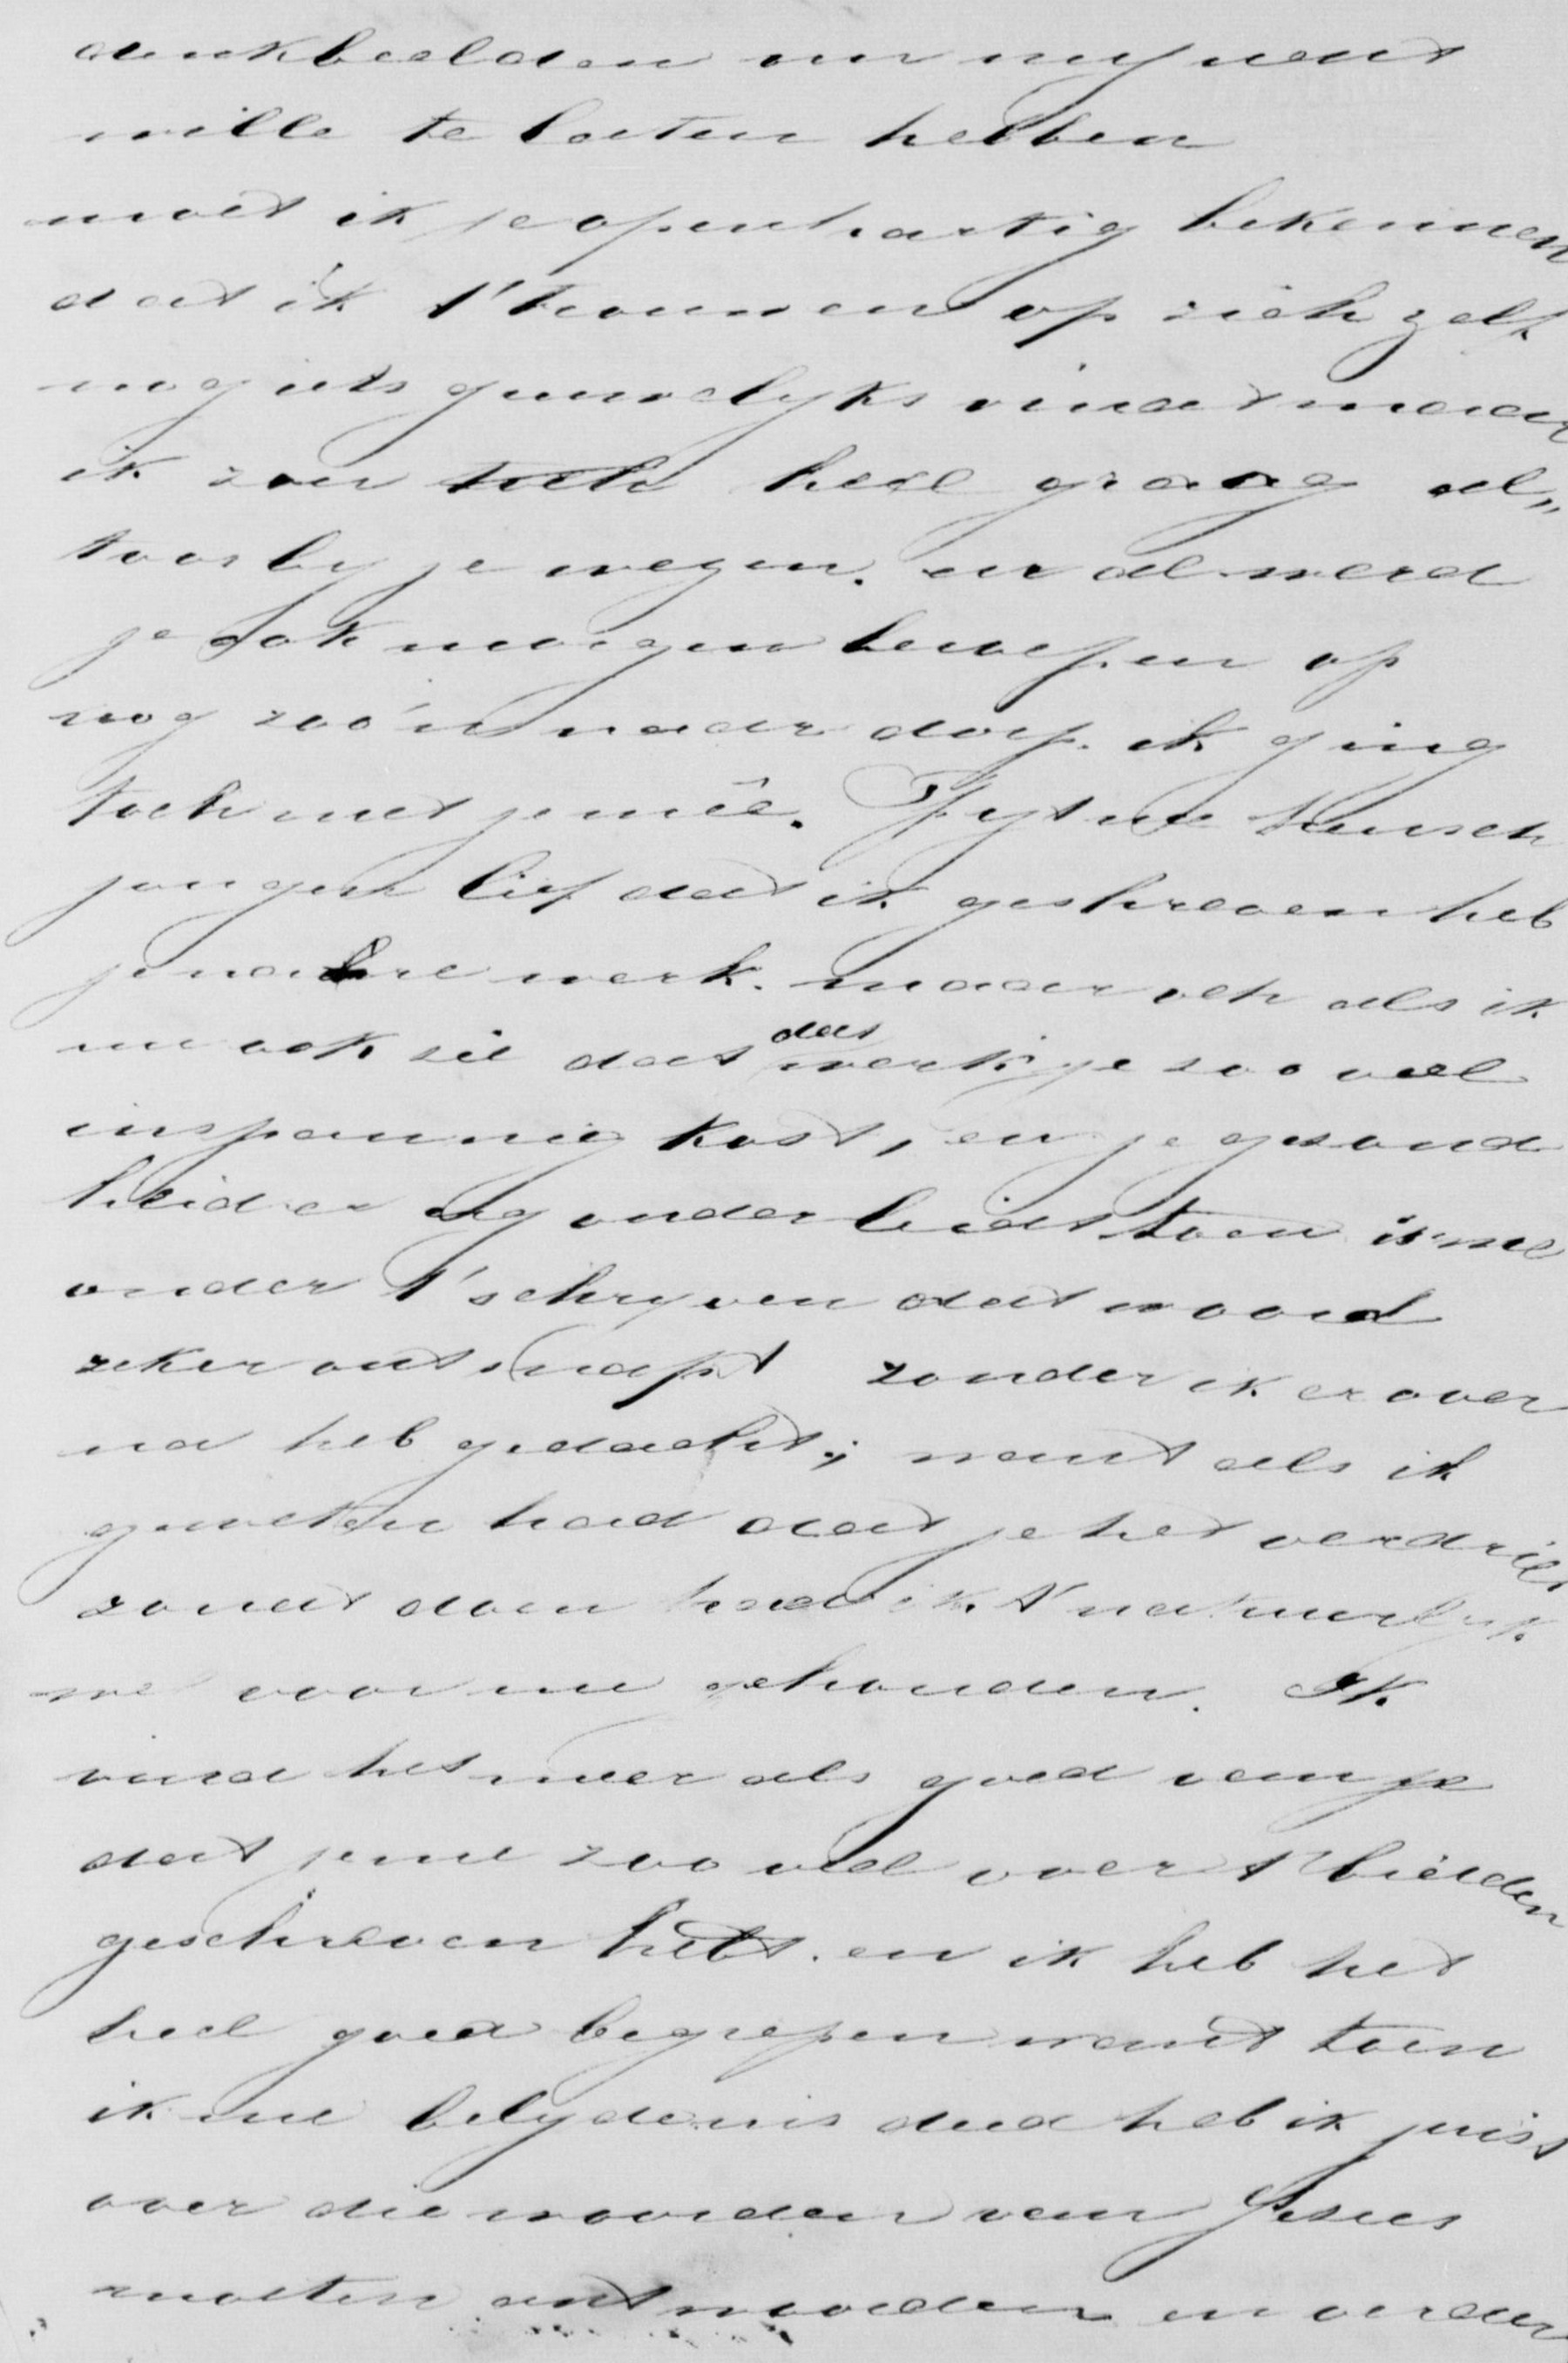 denkbeelden om mijnent
wille te laten hebben
moet ik je openhartig bekennen
dat ik t' trouwen op zich zelf
nog iets gruwelyks vindt maar
ik zou toch heel graag al„
toos by je wezen. en al werd
je ook morgen beroepen op
nog zoo'n naar dorp. ik ging
toch met je meê. Spyt me tensch
jongen lief dat ik geshreven heb
je nare werk. maar och als ik
nu ook zie dat dat werk je zoo veel
inspanning kost, en je gezond
heid er nog onder leidt toen is me
onder t' schryven dat woord
zeker ontsnapt zonder ik er over
na heb gedacht; want als ik
geweten had dat je het verdriet
zoudt doen had ik t' natuurlyk
voor me gehouden. Ik
vind het meer als goed van je
dat je me zoo veel over t' bidden
geschreven hebt. en ik heb het
heel goed begrepen want toen
ik me belydenis deed heb ik juist
over die woorden van Jesus
moeten antwoorden en verder